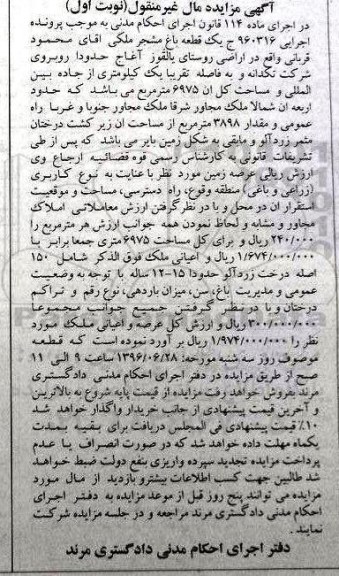 آگهی مزایده مال غیرمنقول(نوبت اول)
در اجرای ماده ۱۱۴ قانون اجرای احکام مدنی به موجب پرونده
اجرایی ۹۶۰۳۱۶ ج یک قطعه باغ مشجر ملکی اقای محمود
قربانی واقع در اراضی روستای یالقوز آغاج حدودا روبروی
شرکت تکدانه و به فاصله تقریبا یک کیلومتری از جاده بین
المللی و مساحت کل ان ۶۹۷۵ مترمربع می باشد که حدود
اربعه ان شمالا ملک مجاور شرقا ملک مجاور جنوبا و غربا راه
عمومی و مقدار ۳۸۹۸ مترمربع از مساحت ان زیر کشت درختان
مثمر زردآلو و مابقی به شکل زمین بایر می باشد که پس از طی
تشریفات قانونی به کارشناس رسمی قوه قضائیه ارجاع وی
ارزش ریالی عرصه زمین مورد نظر با عنایت به نوع کاربری
(زراعی و باغی) منطقه وقوع، راه دسترسی، مساحت و موقعیت
استقرار ان در محل و با در نظر گرفتن ارزش معاملاتی املاک
مجاور و مشابه و لحاظ نمودن همه جوانب ارزش هر مترمربع را
۲۴۰/۰۰۰ ریال و برای کل مساحت ۶۹۷۵ متری جمعا برابر با
۱/۶۷۴/۰۰۰/۰۰۰ ریال و اعیانی ملک فوق الذکر شامل ۱۵۰
اصله درخت زردآلو حدودا ۱۵-۱۲ ساله با توجه به وضعیت
عمومی و مدیریت باغ، سن، میزان باردهی، نوع رقم و تراکم
درختان و با در نظر گرفتن جمیع جوانب مجموعا
۳۰۰/۰۰۰/۰۰۰ ریال و ارزش کل عرصه و اعیانی ملک مورد
نظر را ۱/۹۷۴/۰۰۰/۰۰۰ ریال بر آورد نموده است که قطعه
موصوف روز سه شنبه مورخه: ۱۳۹۶/۰۶/۲۸ ساعت ۹ الی ۱۱
صبح از طریق مزایده در دفتر اجرای احکام مدنی دادگستری
مرند بفروش خواهد رفت مزایده از قیمت پایه شروع به بالاترین
و آخرین قیمت پیشنهادی از جانب خریدار واگذار خواهد شد
۱۰٪ قیمت پیشنهادی فی المجلس دریافت برای بقیه بمدت
یکماه مهلت داده خواهد شد که در صورت انصراف یا عدم
پرداخت مزایده تجدید سپرده واریزی بنفع دولت ضبط خواهد
شد طالبین جهت کسب اطلاعات بیشترو بازدید از مال مورد
مزایده می توانند پنج روز قبل از موعد مزایده به دفتر اجرای
احکام مدنی دادگستری مرند مراجعه و در جلسه مزایده شرکت
نمایند.
دفتر اجرای احکام مدنی دادگستری مرند